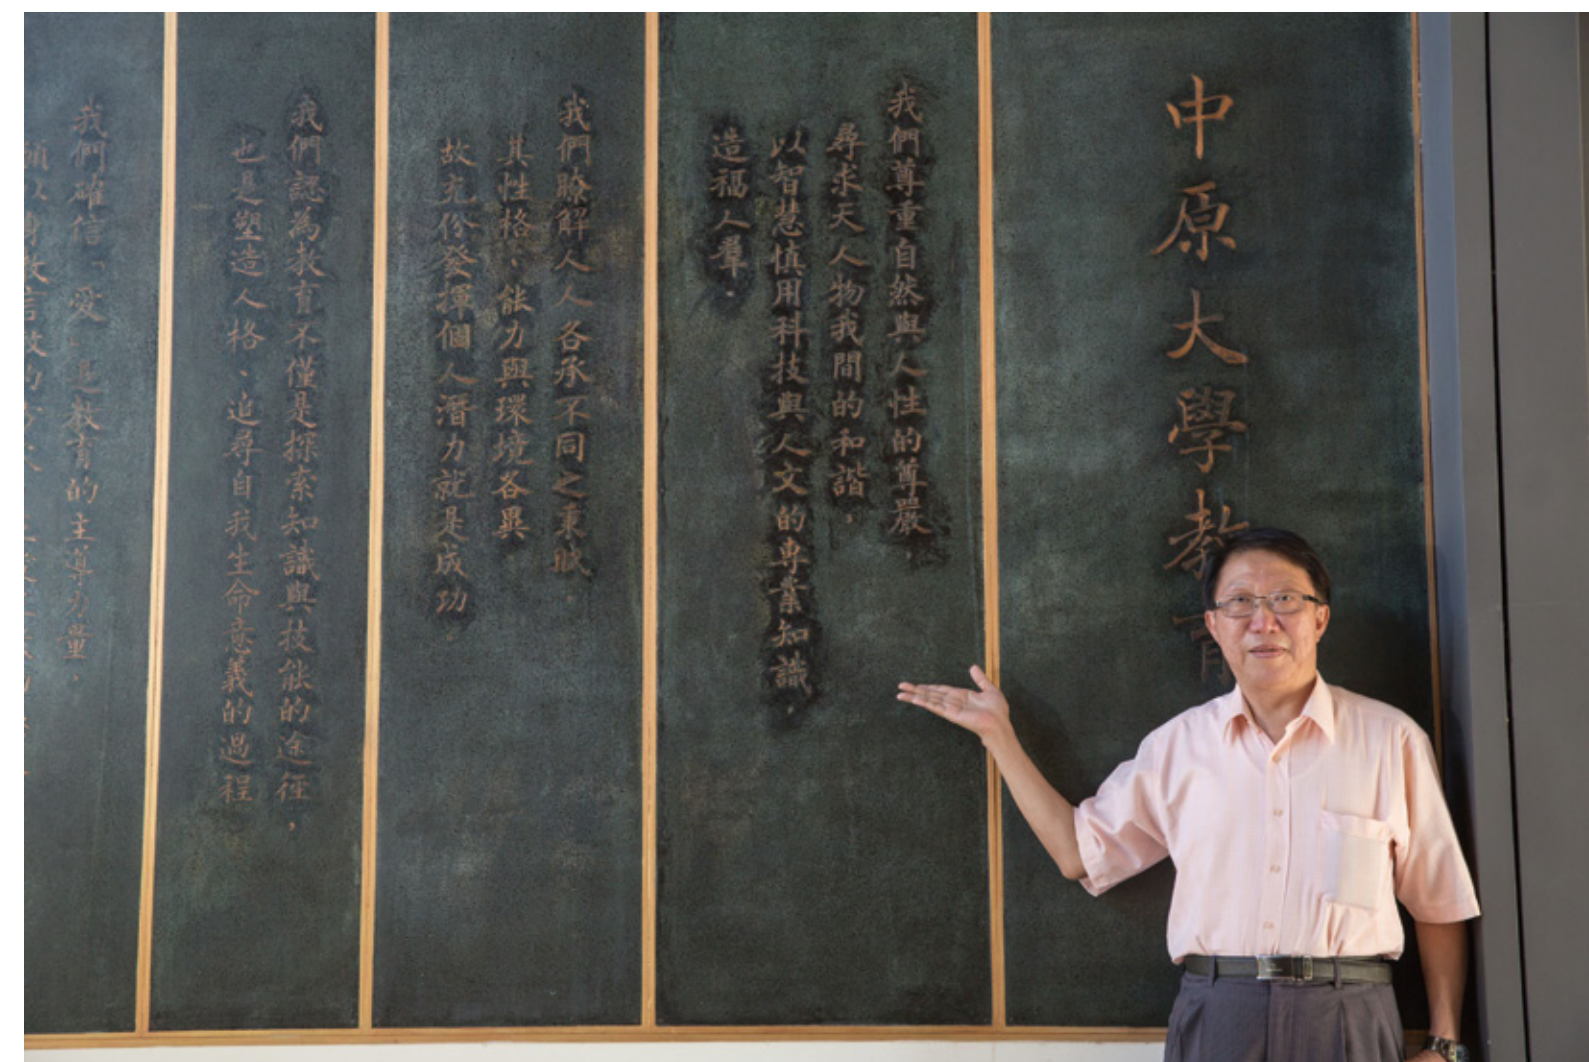 中原大學教育
我們尊重自然與人性的尊嚴，
尋求天人物我間的和諧，
以智慧慎用科技與人文的專業知識，
造福人羣。
我們瞭解人人各承不同之秉賦，
其性格、能力與環境各異
故充份發揮個人潛力就是成功。
我們認為教育不僅是探索知識與技能的途徑，
也是塑造人格、追尋自我生命意義的過程
我們確信「愛」是教育的主導力量，